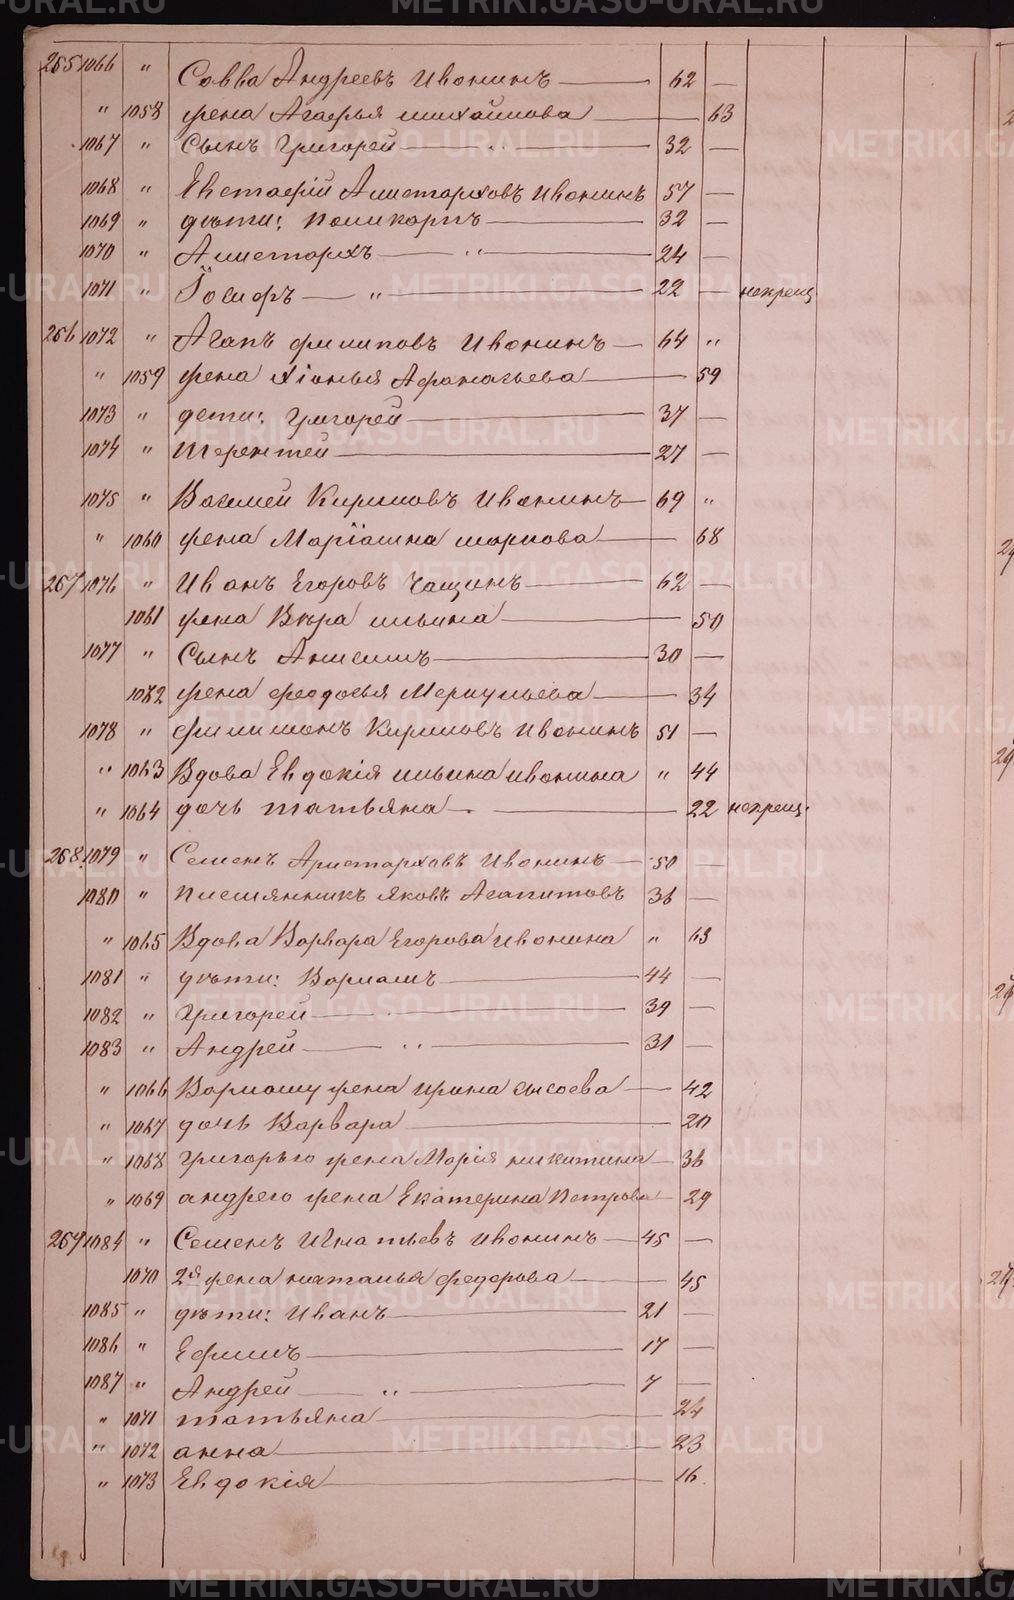 265 1066 " Савва Андреевъ Ивонинъ — 62 —
" 1058 жена Агафья михайлова — 63
1067 " Сынъ Григорей — 32 —
1068 " Евстафій Алистарховъ Ивонинъ 57 —
1069 " дѣти: Поликарпъ — 32 —
1070 " Алистархъ — " — 24 —
1071 " Іосифъ — " — 22 — некрещ.
266 1072 " Агапъ филиповъ Ивонинъ — 64 "
" 1059 жена Хіонья Афанасьева — 59
1073 " дети: Григорей — 37 —
1074 " Терентей — 27 —
1075 " Василей Кириловъ Ивонинъ — 69 "
" 1060 жена Маріамна
карпова — 68
267 1076 " Иванъ Егоровъ Чащинъ — 62 —
1061 жена Вѣра ильина — 50
1077 " Сынъ Анисимъ — 30 —
1062 жена феодосья Меркульева — 34
1078 " филимонъ Кириловъ Ивонинъ 51 —
" 1063 Вдова Евдокія ильина ивонина " 44
" 1064 дочь татьяна — 22 некрещ.
268 1079 " Семенъ Аристарховъ Ивонинъ — 50 —
1080 " племянникъ яковъ Агапитовъ 36 —
" 1065 Вдова Варвара Егорова Ивонина " 63
1081 " дѣти: Варламъ — 44 —
1082 " Григорей — 39 —
1083 " Андрей — " — 31 —
" 1066 Варламу жена ирина сысоева — 42
" 1067 дочь Варвара — 20
" 1068 григорью жена Марія никитина — 36
" 1069 андрею жена Екатерина Петрова — 29
269 1084 " Семенъ Игнатьевъ ивонинъ — 45 —
1070 2я жена наталья федорова — 45
1085 " дѣти: Иванъ — 21 —
1086 " Ефимъ — 17 —
1087 " Андрей — " — 7 —
" 1071 татьяна — 24
" 1072 анна — 23
" 1073 Евдокія — 16.
METRIKI.GASO-URAL.RU